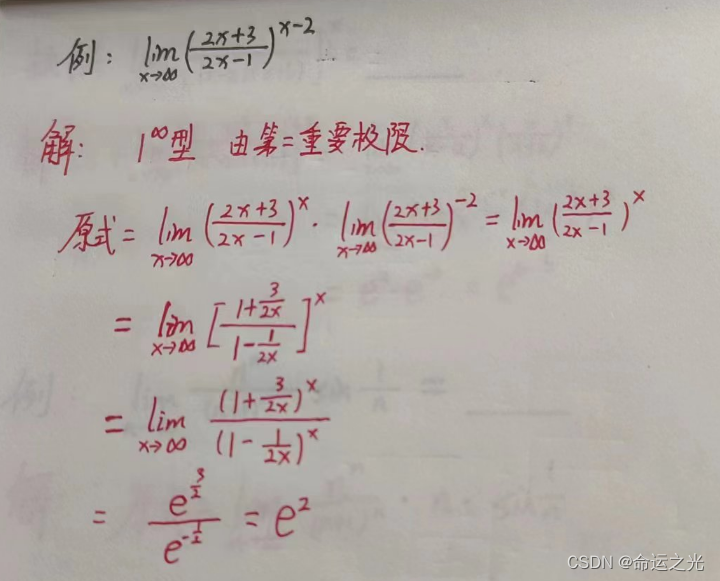 例: lim x→∞ (2x+3 / 2x-1)^(x-2)
解: 1^∞型 由第二重要极限.
原式 = lim x→∞ (2x+3 / 2x-1)^x · lim x→∞ (2x+3 / 2x-1)^(-2) = lim x→∞ (2x+3 / 2x-1)^x
= lim x→∞ [(1+3/2x) / (1-1/2x)]^x
= lim x→∞ (1+3/2x)^x / (1-1/2x)^x
= e^(3/2) / e^(-1/2) = e^2
CSDN @命运之光